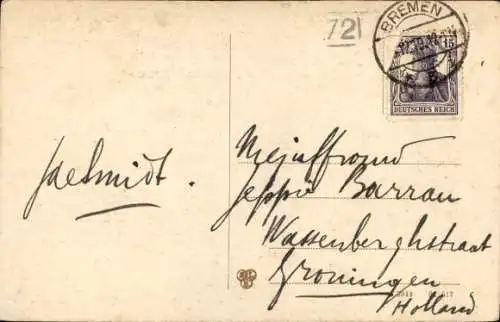 72
BREMEN
15
DEUTSCHES REICH
JaeSmidt.
Mejuffrouw
Jeppie Barrau
Wassenberghstraat
Groningen
Holland